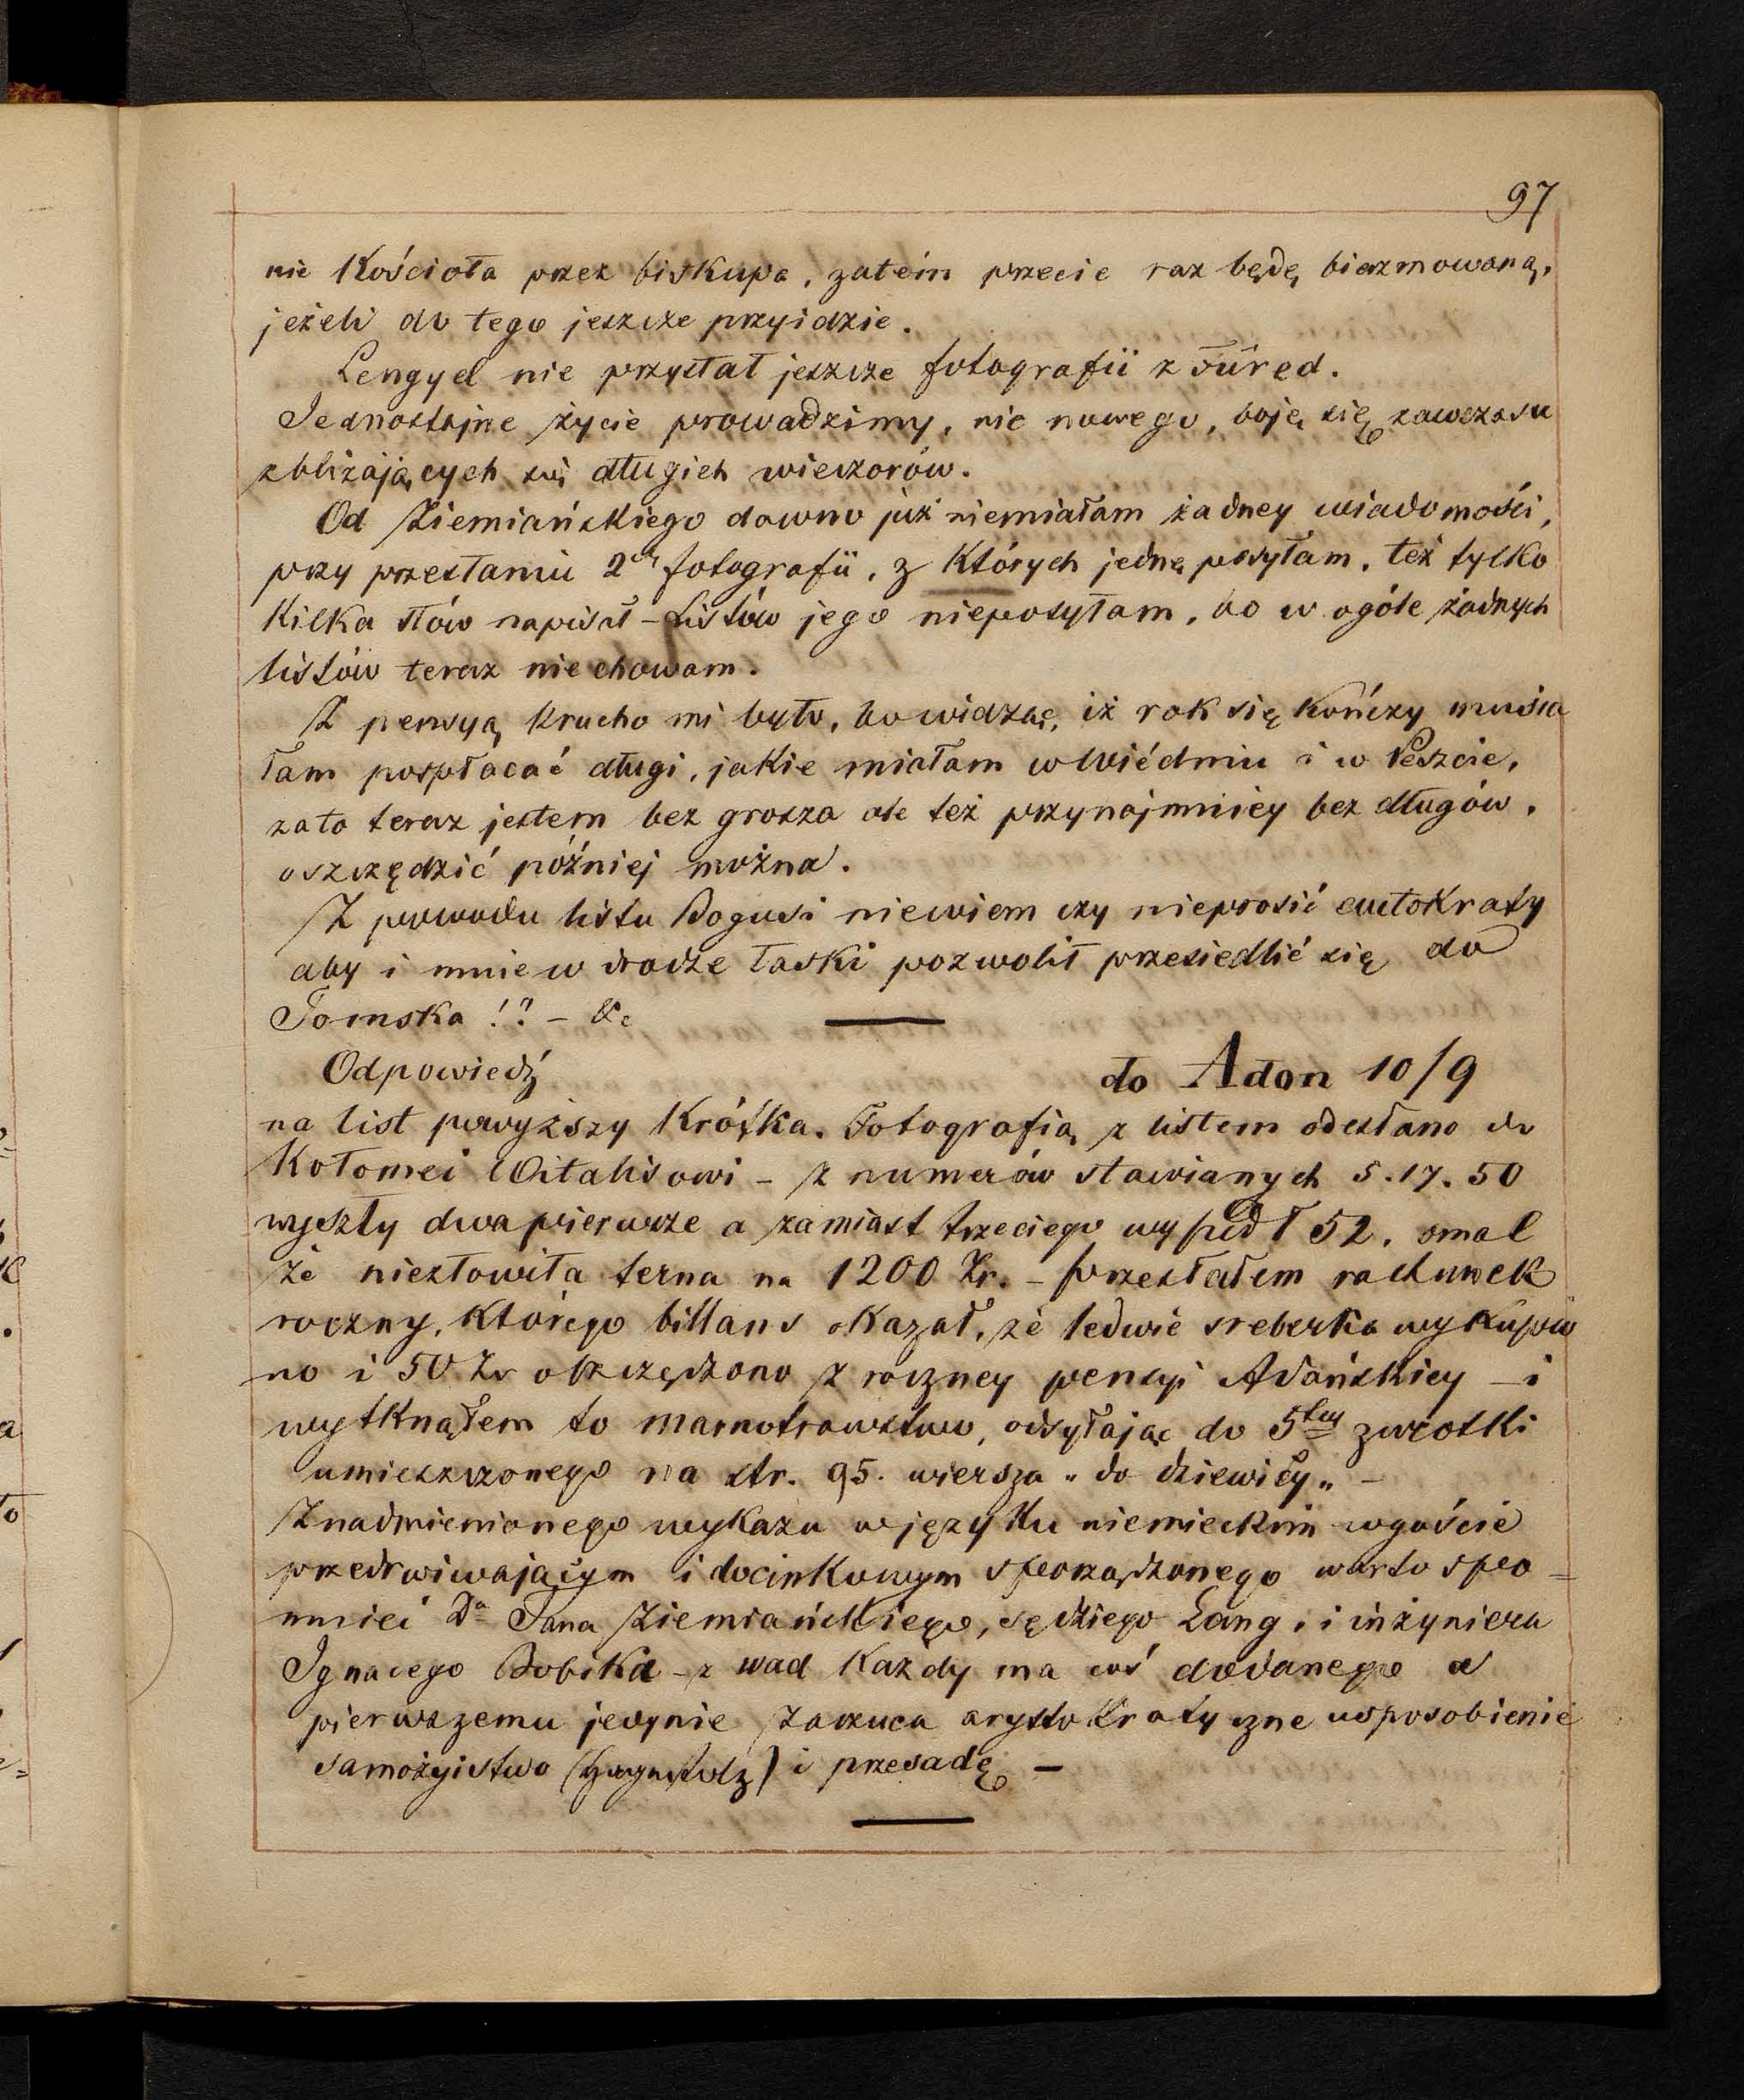 97
nie Kościoła przez biskupa, zatém przecie raz będę bierzmowaną,
jeżeli do tego jeszcze przyidzie.
Lengyel nie przysłał jeszcze fotografii z Füred.
Jednostajne życie prowadzimy, nic nowego, boję się zawczasu
zbliżających się długich wieczorów.
Od Ziemiańskiego dawno już niemiałam żadney wiadomości,
przy przesłaniu 2ch fotografii, z których jedną posyłam, też tylko
kilka słów napisał – Listów jego nieposyłam, bo w ogóle żadnych
listów teraz niechowam.
Z pensyą krucho mi było, bo widząc, iż rok się kończy musia
łam pospłacać długi, jakie miałam w Wiédniu i w Peszcie,
zato teraz jestem bez grosza ale też przynajmniey bez długów,
oszczędzić później można.
Z powodu listu Bogusi niewiem czy nieprosić autokraty
aby i mnie w drodze łaski pozwolił przesiedlić się do
Tomska !? – &c
Odpowiedź
do Adon 10/9
na list powyższy krótka. Fotografią z listem odesłano do
Kołomei Witalisowi – z numerów stawianych 5.17.50
wyszły dwa pierwsze a zamiast trzeciego wyszedł 52. omal
że niezłowiła terna na 1200 Zr. – przesłałem rachunek
roczny, którego billans okazał, że ledwie sreberka wykupio
no i 50 Zr oszczędzono z roczney pensyi Adańskiey – i
wytknąłem to marnotrawstwo, odsyłając do 5tey zwrotki
umieszczonego na str. 95. wiersza „do dziewicy„ –
Znadmienionego wykazu w języku niemieckim w guście
przedrwiwającym i docinkowym sporządzonego warto spo=
mnieć Da Jana Ziemiańskiego, sędziego Lang, i inżyniera
Ignacego Bobika – z wad każdy ma coś dodanego a
pierwszemu jedynie zarzuca arystokratyczne usposobienie
samożyistwo () i przesadę –